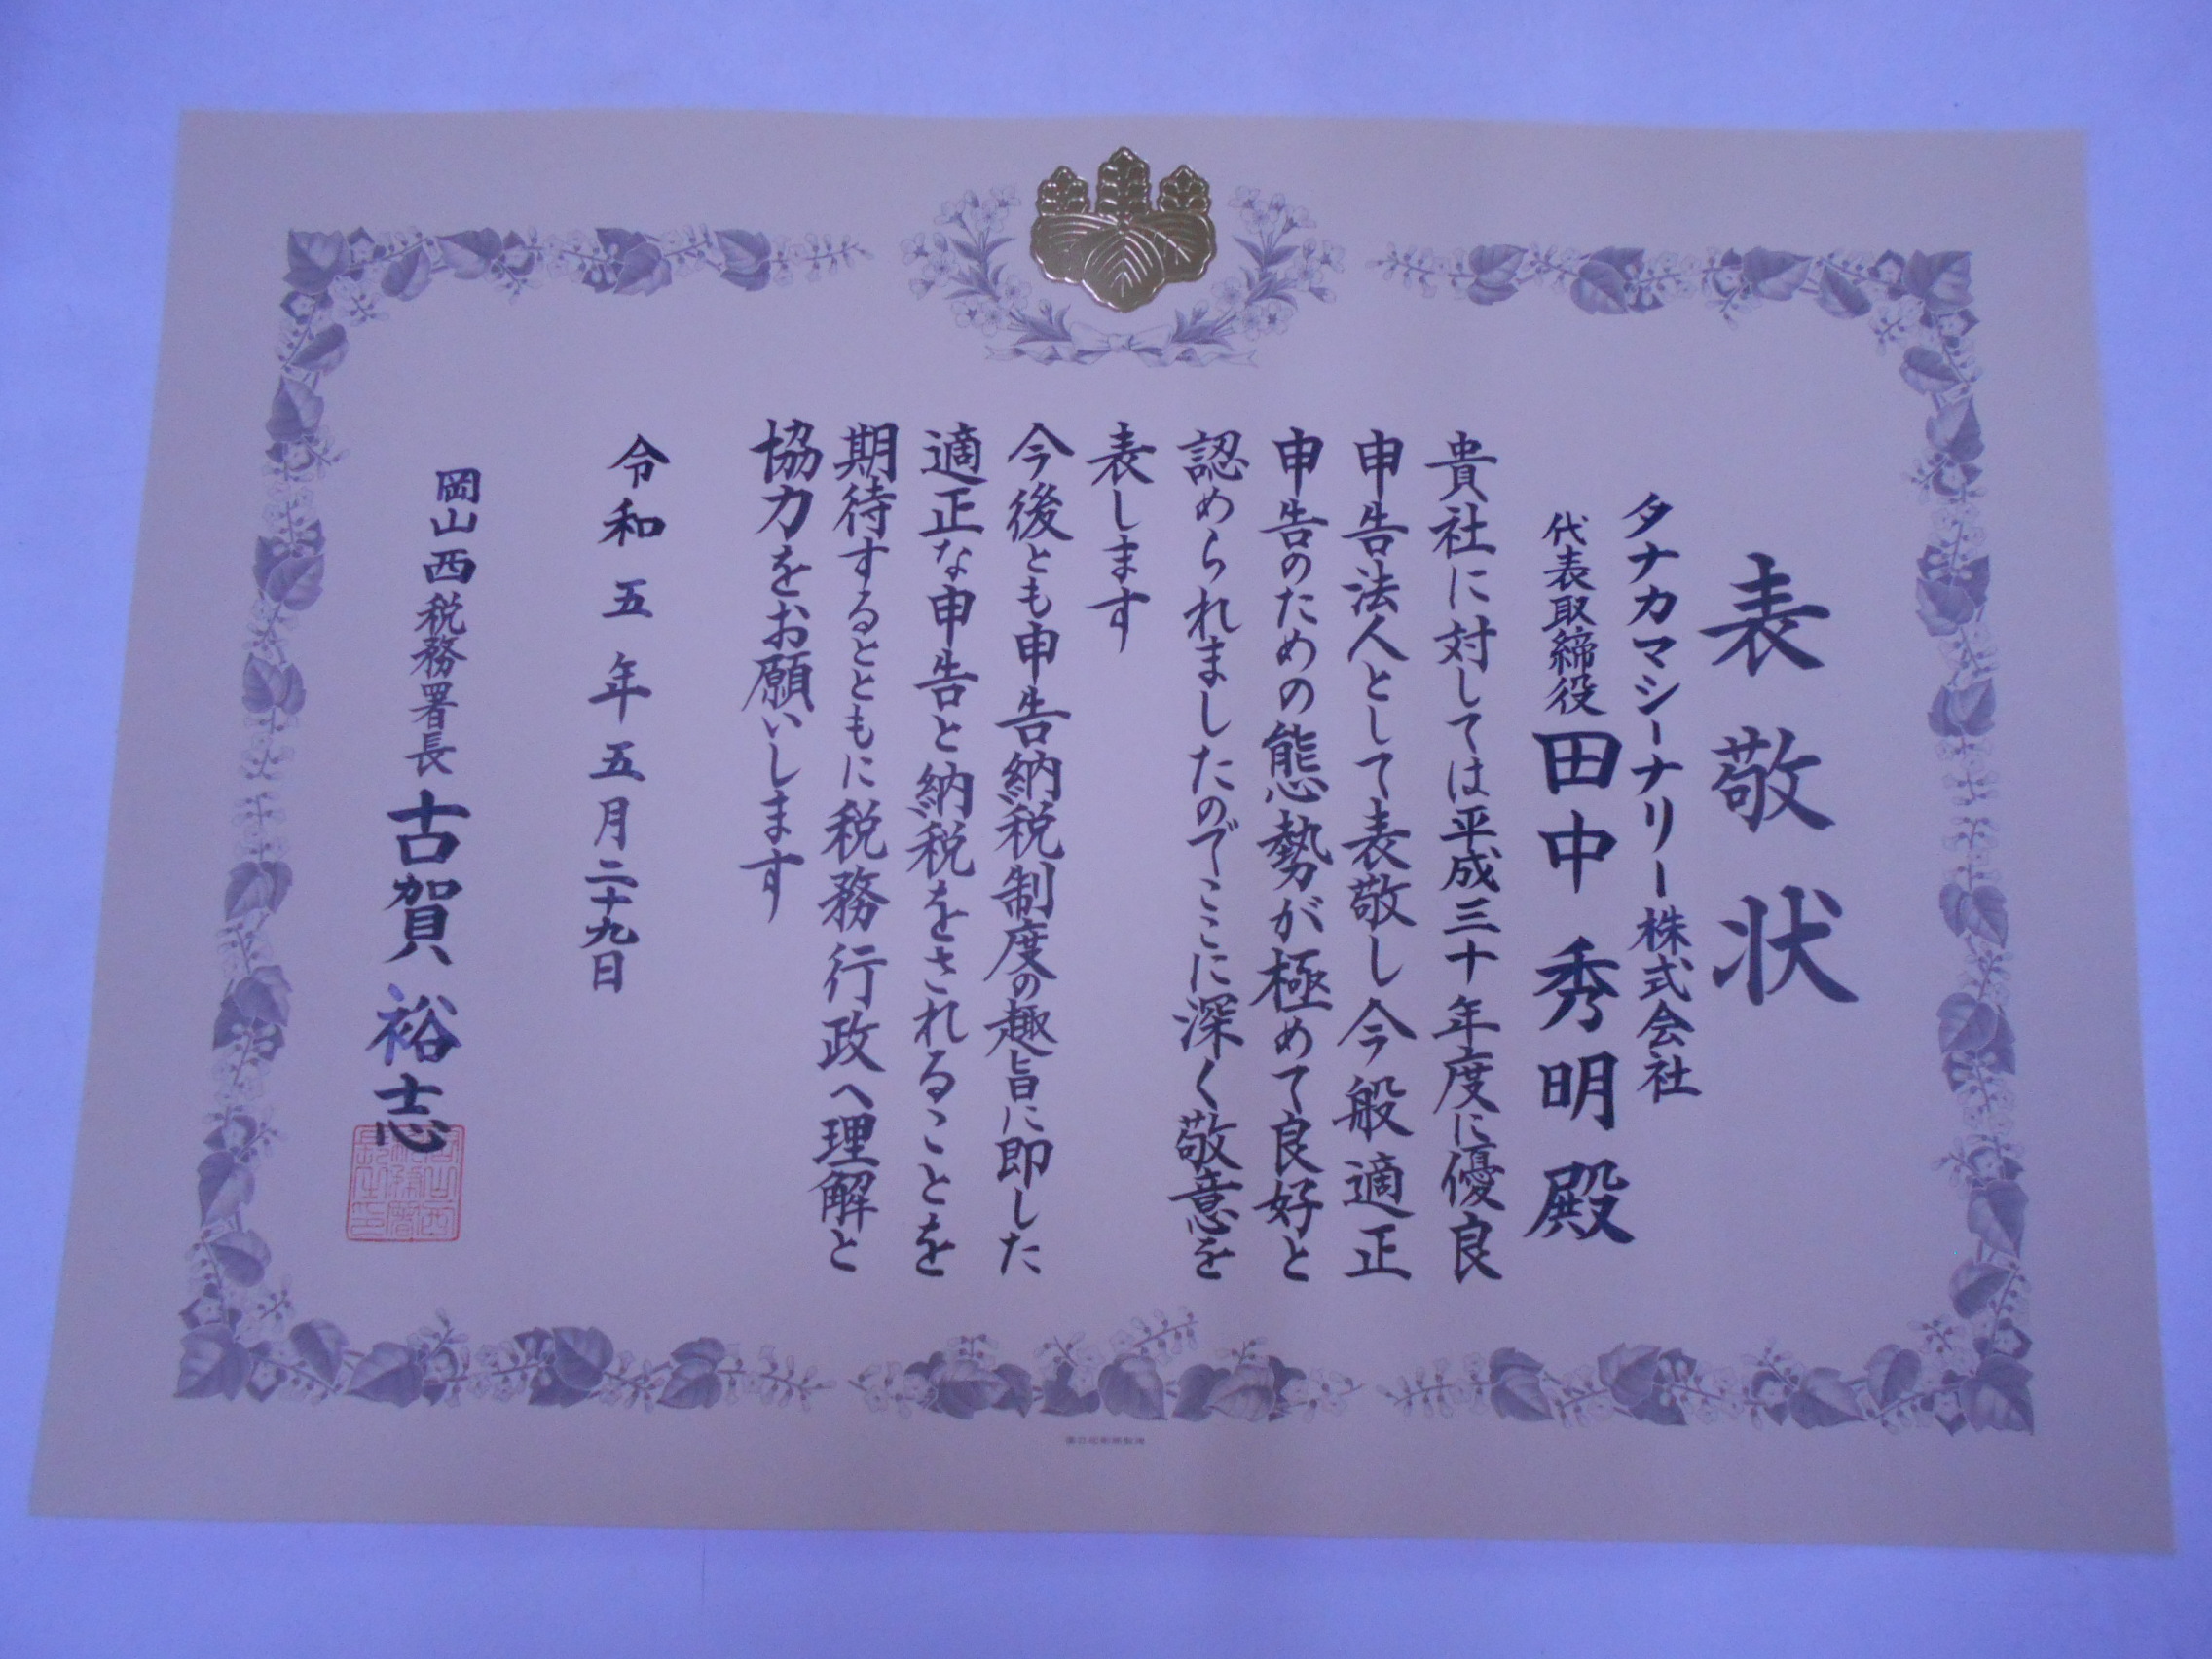 表敬状
タナカマシーナリー株式会社
代表取締役 田中秀明殿
貴社に対しては平成三十年度に優良
申告法人として表敬し今般適正
申告のための態勢が極めて良好と
認められましたのでここに深く敬意を
表します
今後とも申告納税制度の趣旨に即した
適正な申告と納税をされることを
期待するとともに税務行政へ理解と
協力をお願いします
令和五年五月二十九日
岡山西税務署長 古賀裕志